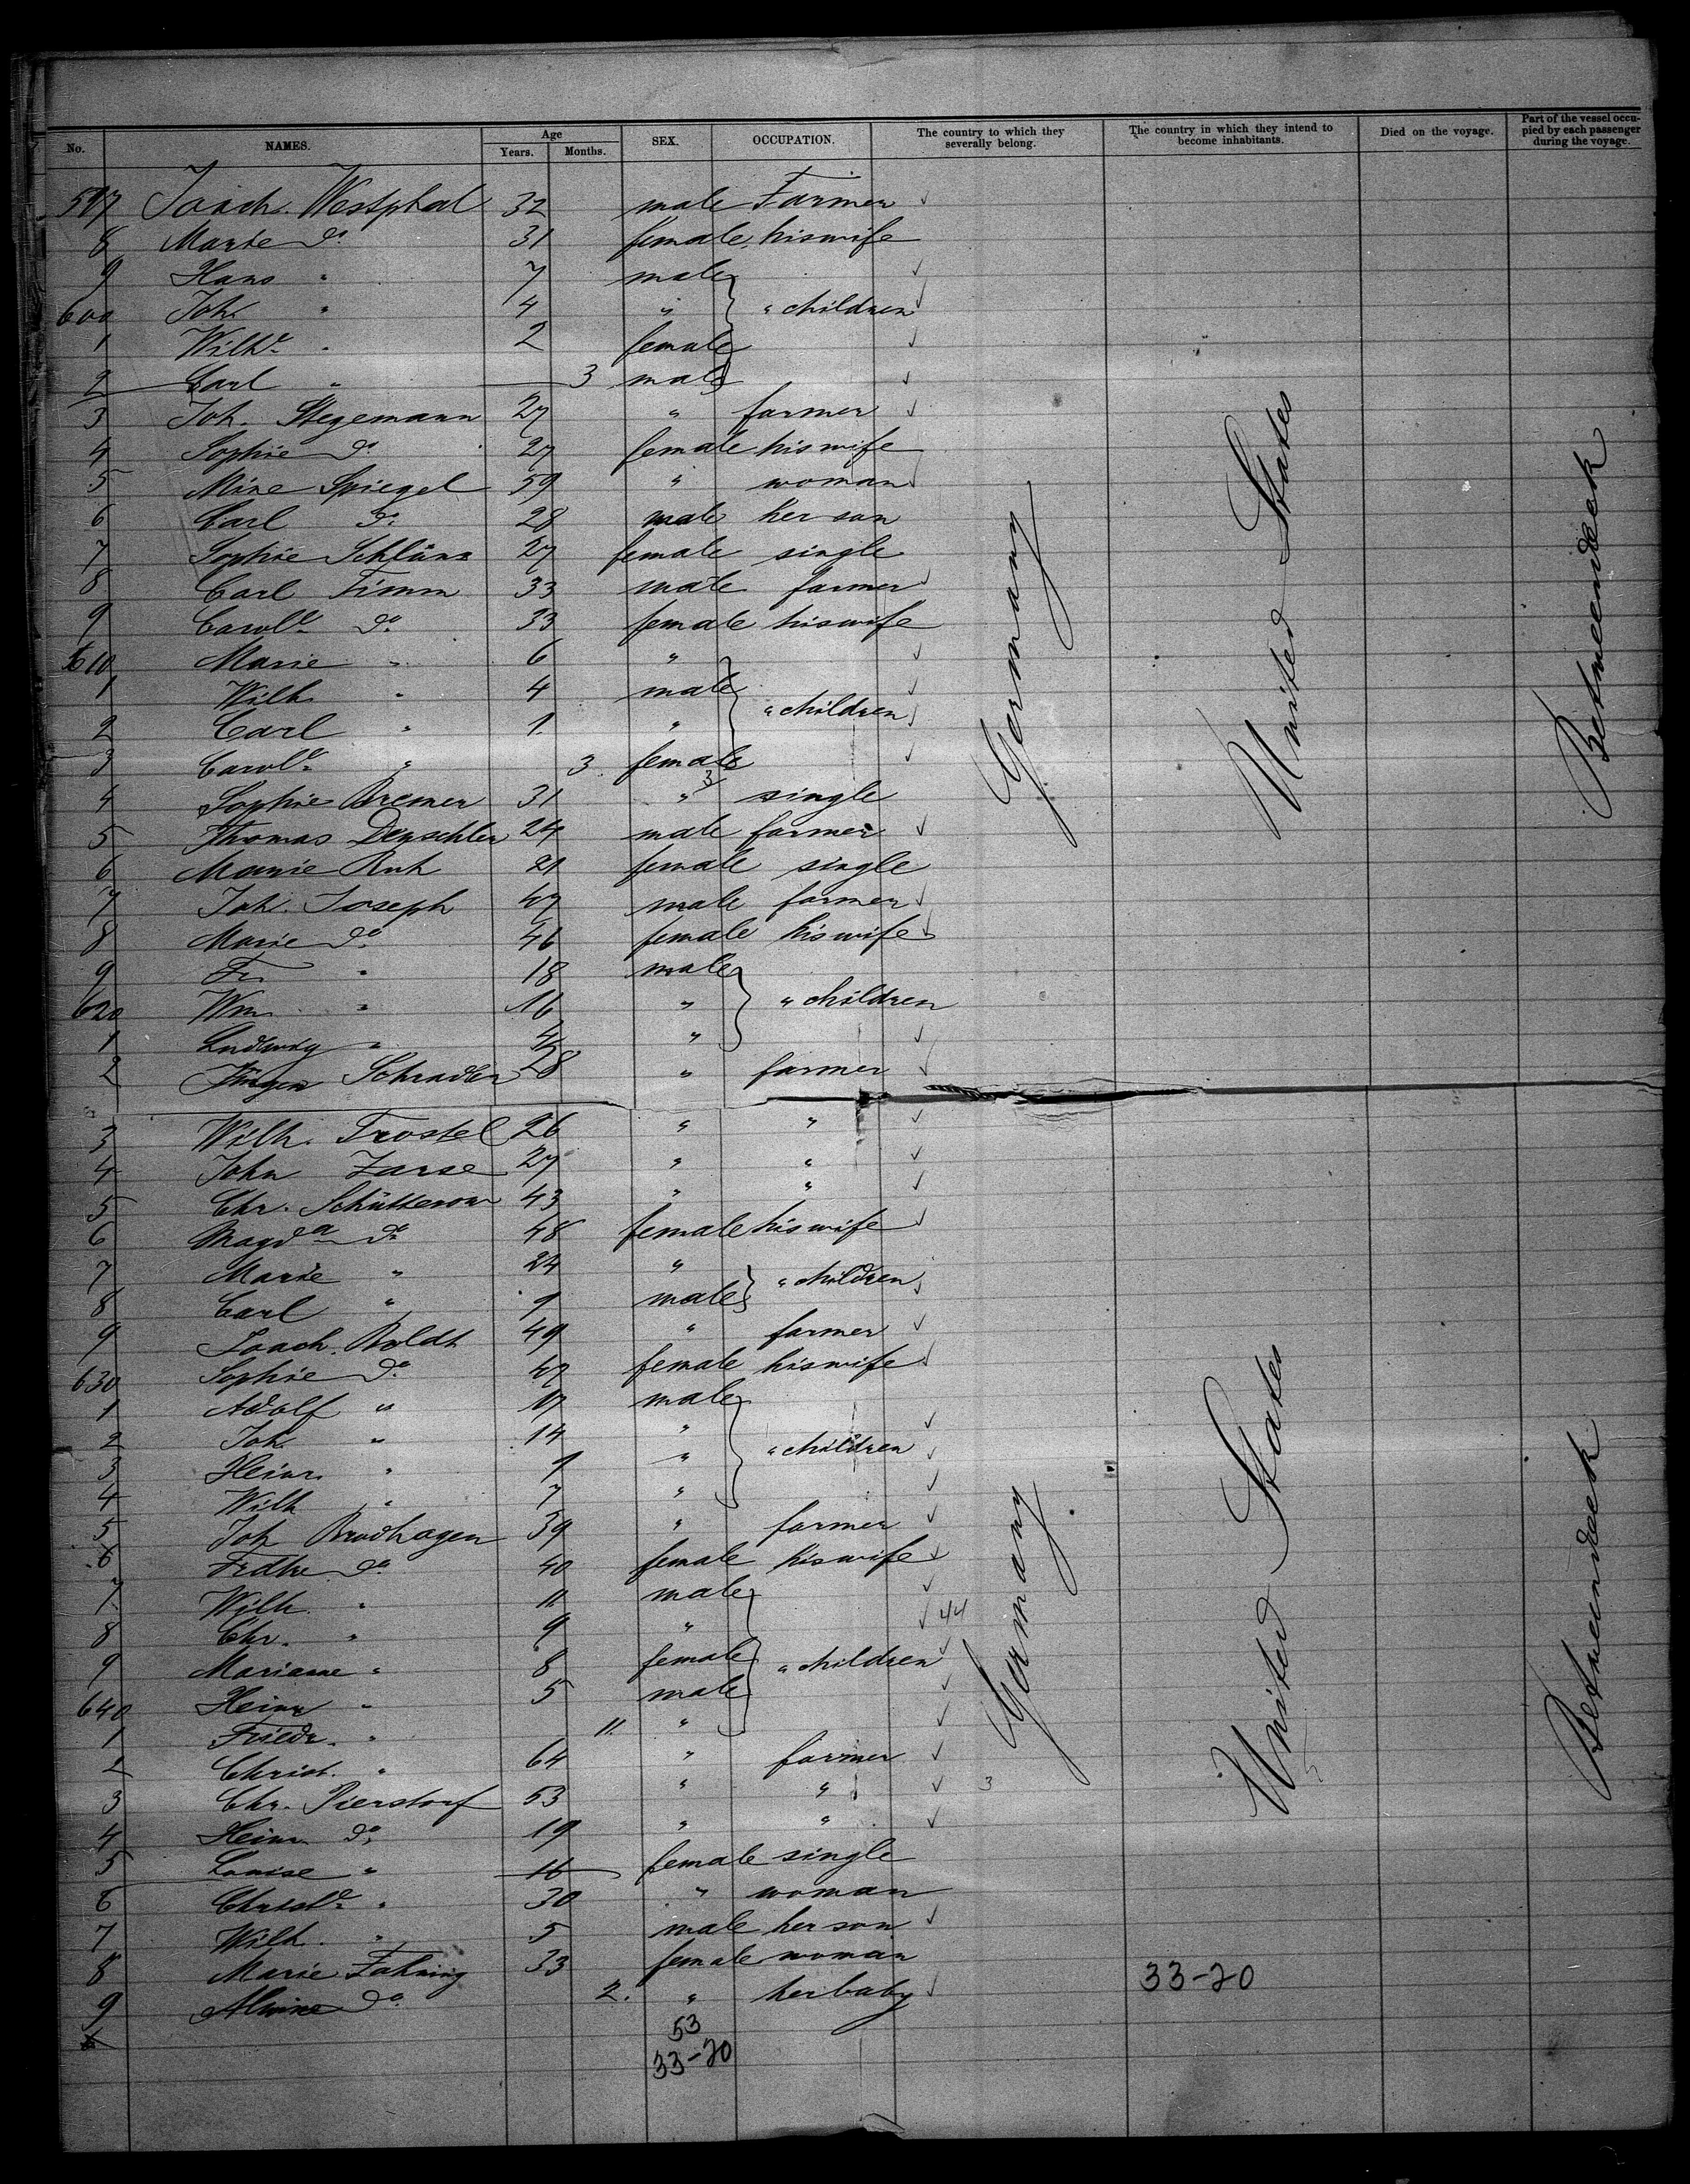 No. NAMES. Age Years. Months. SEX. OCCUPATION. The country to which they severally belong. The country in which they intend to become inhabitants. Died on the voyage. Part of the vessel occupied by each passenger during the voyage.
597 Joach. Westphal 32 male Farmer
8 Marie do 31 female his wife
9 Hans " 7 male
600 Joh. " 4 " " children
1 Wilhe " 2 female
2 Carl " 3 male
3 Joh. Stegemann 27 " farmer
4 Sophie do 27 female his wife
5 Mine Spiegel 59 " woman
6 Carl do 28 male her son
7 Sophie 27 female single
8 Carl Timm 33 male farmer
9 Carole do 33 female his wife
610 Marie " 6 "
1 Wilh " 4 male " children
2 Carl " 1 "
3 Carole " 3 female
4 Sophie Bremer 31 " 3 single
5 Thomas Deyschler 24 male farmer
6 Marie Ruh 21 female single
7 Joh. Joseph 47 male farmer
8 Marie do 46 female his wife
9 Fr. " 18 male
620 Wm. " 16 " " children
1 Ludwig " "
2 Jürgen Schrader 28 " farmer
3 Wilh. Trostel 26 " "
4 John Zarse 27 " "
5 Chr. 43 " "
6 Magda do 48 female his wife
7 Marie " 24 " " children
8 Carl " 9 male
9 Joach. Boldt 49 " farmer
630 Sophie do 47 female his wife
1 Adolf " 17 male
2 Joh. " 14 " " children
3 Heinr. " 9 "
4 Wilh " 7 "
5 Joh Brodhagen 39 " farmer
6 Fedke do 40 female his wife
7 Wilh. " 11 male
8 Chr. " 9 " 44
9 Mariane " 8 female " children
640 Heinr " 5 male
1 Friedr. " 11 "
2 Christ. " 64 " farmer
3 Chr. Pierstorf 53 " " 3
4 Heinr do 19 " "
5 Louise " 16 female single
6 Christe " 30 " woman
7 Wilh. " 5 male her son
8 Marie Fahning 33 female woman
9 Alwine do 2. " her baby
Germany
United States
Betweendeck
Germany
United States
Betweendeck
33-20
53
33-20